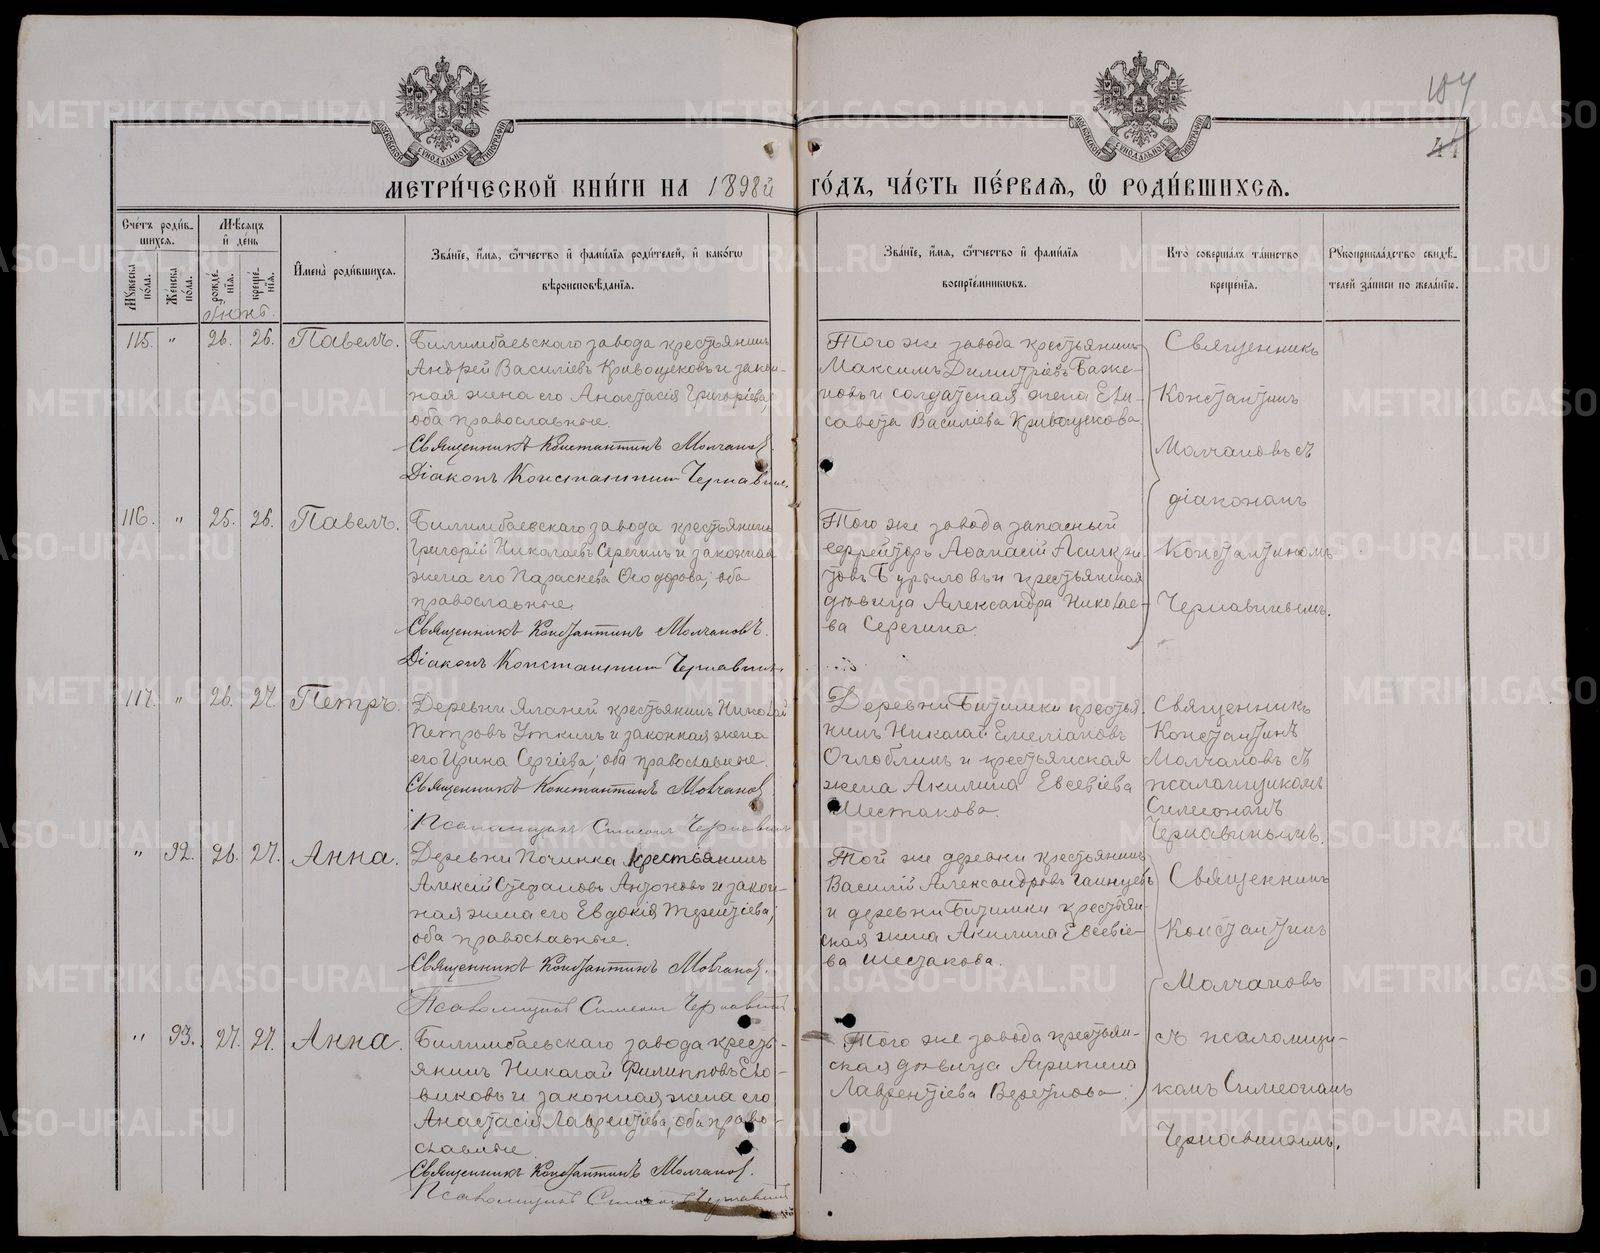 МЕТРИ́ЧЕСКОЙ КНИ́ГИ НА 1898й ГО́ДЪ, ЧА́СТЬ ПЕ́РВАѦ, Ѡ҆ РОДИ́ВШИХСѦ.
107
44
МОСКОВСКОЙ СѴНОДАЛЬНОЙ ТИПОГРАФІИ
МОСКОВСКОЙ СѴНОДАЛЬНОЙ ТИПОГРАФІИ
Сче́тъ роди́в-
шихсѧ.
Мѣ́сѧцъ
и҆ де́нь
Мꙋ́жеска
по́ла.
Же́нска
по́ла.
рожде́-
нїѧ.
креще́-
нїѧ.
Іюнь.
И҆мена̀ роди́вшихсѧ.
Зва́нїе, и҆́мѧ, ѻ҆́тчество и҆ фами́лїѧ роди́телей, и҆ како́гѡ
вѣроисповѣ́данїѧ.
Зва́нїе, и҆́мѧ, ѻ҆́тчество и҆ фами́лїѧ
воспрїе́мникѡвъ.
Кто̀ соверша́лъ та́инство
креще́нїѧ.
Рꙋкоприкла́дство свидѣ́-
телей за́писи по жела́нїю.
115. " 26. 26. Павелъ.
Билимбаевскаго завода крестьянинъ
Андрей Василіевъ Кривощековъ и закон-
ная жена его Анастасія Григоріева;
оба православные.
Священникъ Константинъ Молчановъ.
Діаконъ Константинъ Чернавинъ.
Того же завода крестьянинъ
Максимъ Димитріевъ Баже-
новъ и солдатская жена Ели-
савета Василіева Кривощекова.
Священникъ
Константинъ
Молчановъ съ
діакономъ
Константиномъ
Чернавинымъ.
116. " 25. 26. Павелъ.
Билимбаевскаго завода крестьянинъ
Григорій Николаевъ Серегинъ и законная
жена его Параскева Ѳеодорова; оба
православные.
Священникъ Константинъ Молчановъ.
Діаконъ Константинъ Чернавинъ.
Того же завода запасный
ефрейторъ Аѳанасій Асинкри-
товъ Бурыловъ и крестьянская
дѣвица Александра Николае-
ва Серегина.
117. " 26. 27. Петръ.
Деревни крестьянинъ Николай
Петровъ Уткинъ и законная жена
его Ирина Сергіева; оба православные.
Священникъ Константинъ Молчановъ.
Псаломщикъ Симеонъ Чернавинъ
Деревни Битимки крестья-
нинъ Николай Емеліановъ
Оглоблинъ и крестьянская
жена Акилина Евсевіева
Шестакова.
Священникъ
Константинъ
Молчановъ съ
псаломщикомъ
Симеономъ
Чернавинымъ.
" 92. 26. 27. Анна.
Деревни Починка крестьянинъ
Алексій Стефановъ Антоновъ и закон-
ная жена его Евдокія Терентіева;
оба православные.
Священникъ Константинъ Молчановъ.
Псаломщикъ Симеонъ Чернавинъ
Той же деревни крестьянинъ
Василій Александровъ Галицевъ
и деревни Битимки крестьян-
ская жена Акилина Евсевіе-
ва Шестакова.
Священникъ
Константинъ
Молчановъ
съ псаломщи-
комъ Симеономъ
Чернавинымъ.
" 93. 27. 27. Анна.
Билимбаевскаго завода кресть-
янинъ Николай Филипповъ Ело-
виковъ и законная жена его
Анастасія Лаврентіева, оба право-
славные.
Священникъ Константинъ Молчановъ.
Псаломщикъ Симеонъ Чернавинъ
Того же завода крестьян-
ская дѣвица Агрипина
Лаврентіева Веретнова.
METRIKI.GASO-URAL.RU